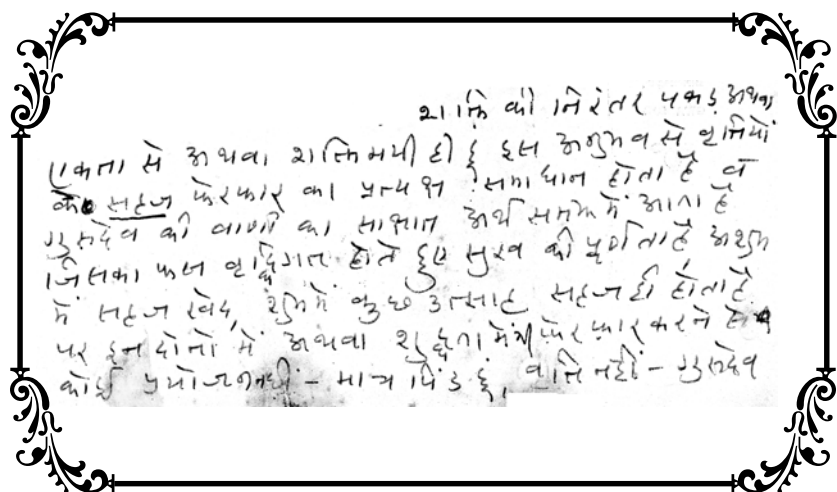 शक्ति की निरंतर पकड़ अथवा
एकता से अथवा शक्तिमयी ही हूं इस अनुभव से वृत्तियों
के सहज फेरफार का प्रत्यक्ष समाधान होता है व
गुरुदेव की वाणी का साक्षात अर्थ समझ में आता है
जिसका फल वृद्धिगत होते हुए सुख की पूर्णता है अशुभ
में सहज खेद, शुभ में कुछ उत्साह सहज ही होता है
पर इन दोनों में अथवा शुद्धता में फेरफार करने का
कोई प्रयोजन नहीं - मात्र पिंड हूं, वृत्ति नहीं - गुरुदेव